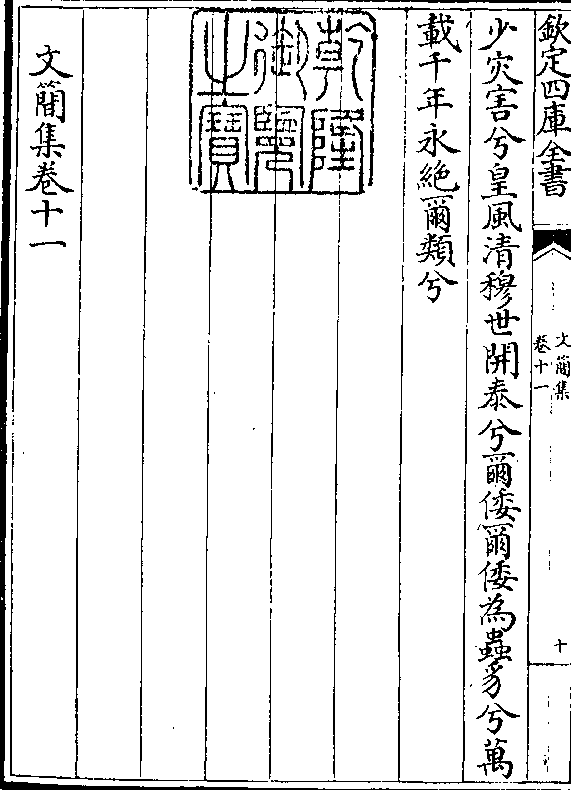 欽定四庫全書
文簡集
卷十一
十
少灾害兮皇風清穆世開泰兮爾倭爾倭為蟲豸兮萬
載千年永絶爾類兮
乾隆
御覽
之寶
文簡集卷十一